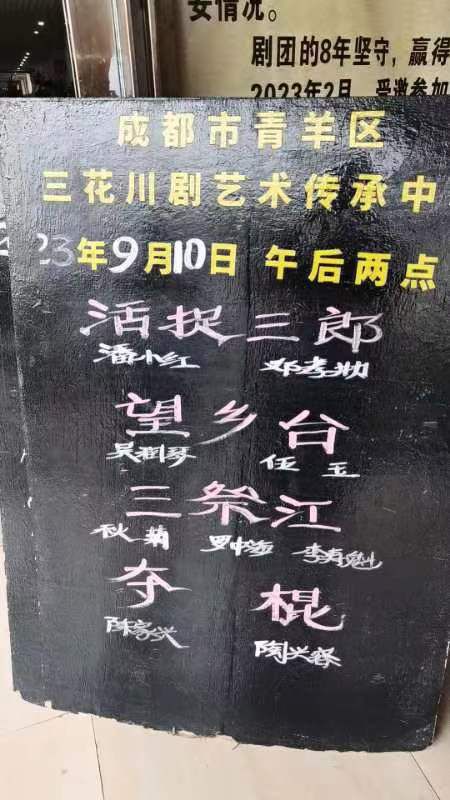 妥情况。
剧团的8年坚守，赢得
2023年2月，受邀参加
成都市青羊区
三花川剧艺术传承中
23年9月10日 午后两点
活捉三郎
潘小红 邓孝
望乡台
吴润琴 任玉
三祭江
秋菊 罗中海 李有魁
夺棍
陈家兴 陶兴